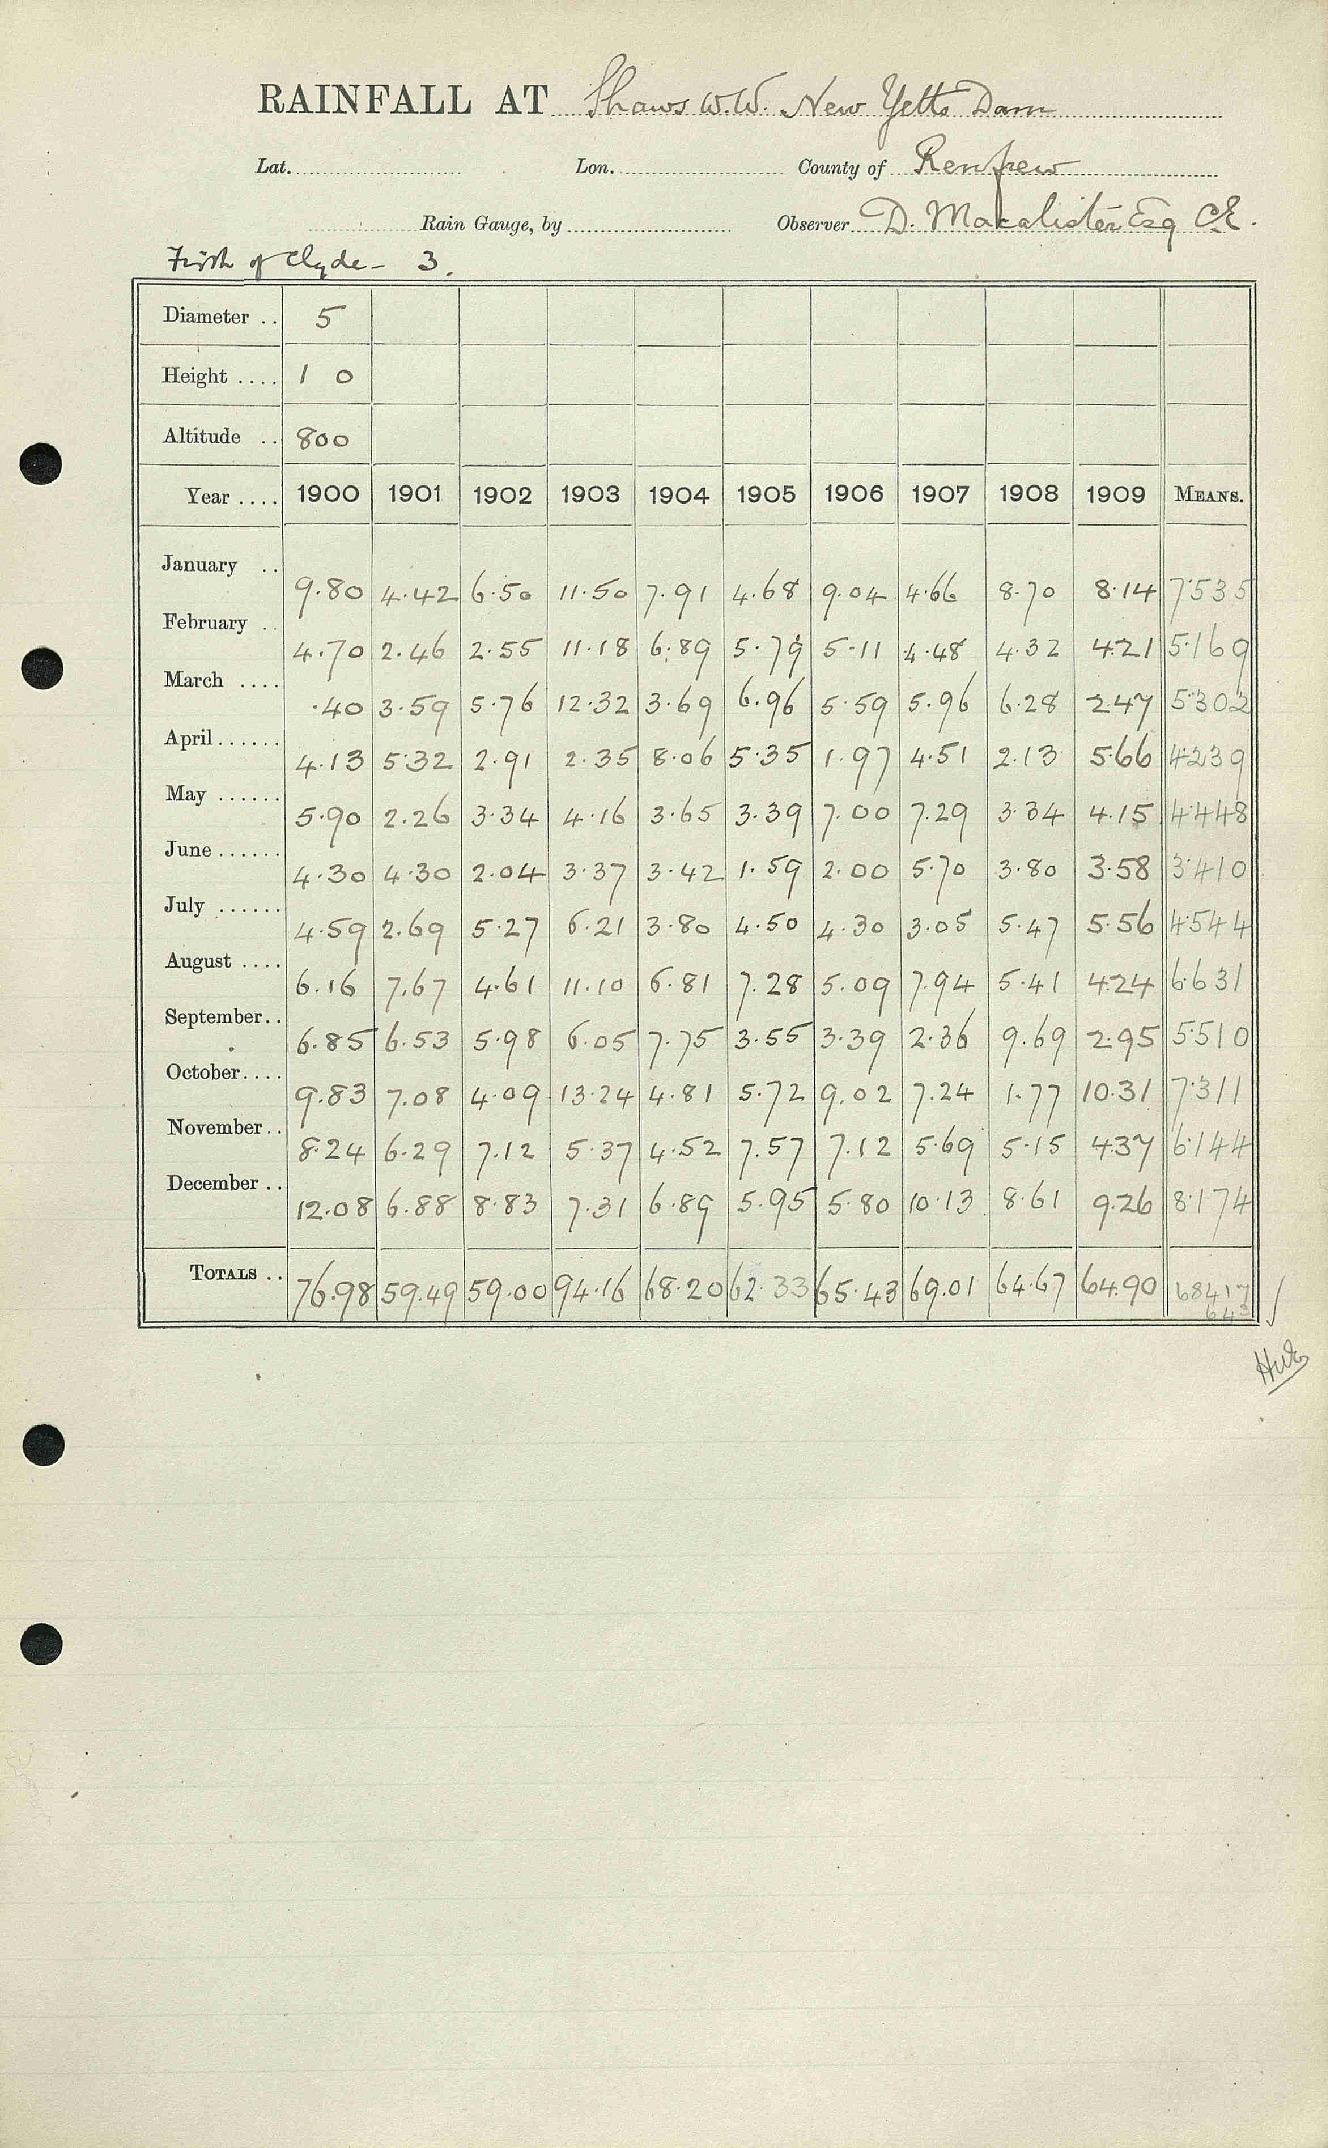 RAINFALL AT Shaws W.W. New Yetts Dam
Lat. Lon. County of Renfrew
Rain Gauge, by Observer D. Macalister Esq C.E.
Firth of Clyde - 3.
Diameter .. 5
Height .... 1 0
Altitude .. 800
Year .... 1900 1901 1902 1903 1904 1905 1906 1907 1908 1909 MEANS.
January .. 9.80 4.42 6.50 11.50 7.91 4.68 9.04 4.66 8.70 8.14 7.535
February .. 4.70 2.46 2.55 11.18 6.89 5.79 5.11 4.48 4.32 4.21 5.169
March .... .40 3.59 5.76 12.32 3.69 6.96 5.59 5.96 6.28 2.47 5.302
April...... 4.13 5.32 2.91 2.35 8.06 5.35 1.97 4.51 2.13 5.66 4.239
May ...... 5.90 2.26 3.34 4.16 3.65 3.39 7.00 7.29 3.34 4.15 4.448
June ...... 4.30 4.30 2.04 3.37 3.42 1.59 2.00 5.70 3.80 3.58 3.410
July ...... 4.59 2.69 5.27 6.21 3.80 4.50 4.30 3.05 5.47 5.56 4.544
August .... 6.16 7.67 4.61 11.10 6.81 7.28 5.09 7.94 5.41 4.24 6.631
September.. 6.85 6.53 5.98 6.05 7.75 3.55 3.39 2.36 9.69 2.95 5.510
October.... 9.83 7.08 4.09 13.24 4.81 5.72 9.02 7.24 1.77 10.31 7.311
November.. 8.24 6.29 7.12 5.37 4.52 7.57 7.12 5.69 5.15 4.37 6.144
December .. 12.08 6.88 8.83 7.31 6.89 5.95 5.80 10.13 8.61 9.26 8.174
TOTALS .. 76.98 59.49 59.00 94.16 68.20 62.33 65.43 69.01 64.67 64.90 68417
643